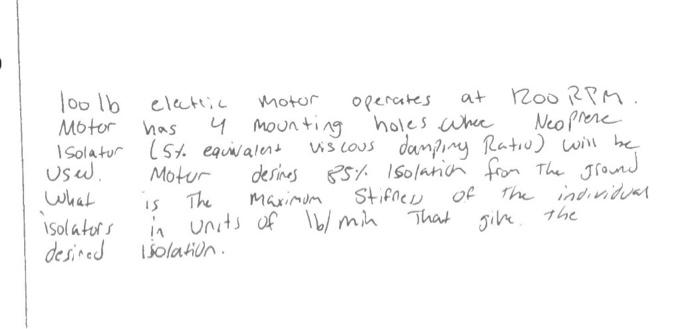 100 lb electric motor operates at 1200 RPM.
Motor has 4 mounting holes where Neoprene
Isolator (5% equivalent viscous damping Ratio) will be
Used. Motor desires 85% Isolation from The ground
What is The Maximum Stiffness of The individual
isolators in Units of lb/min That give the
desired Isolation.